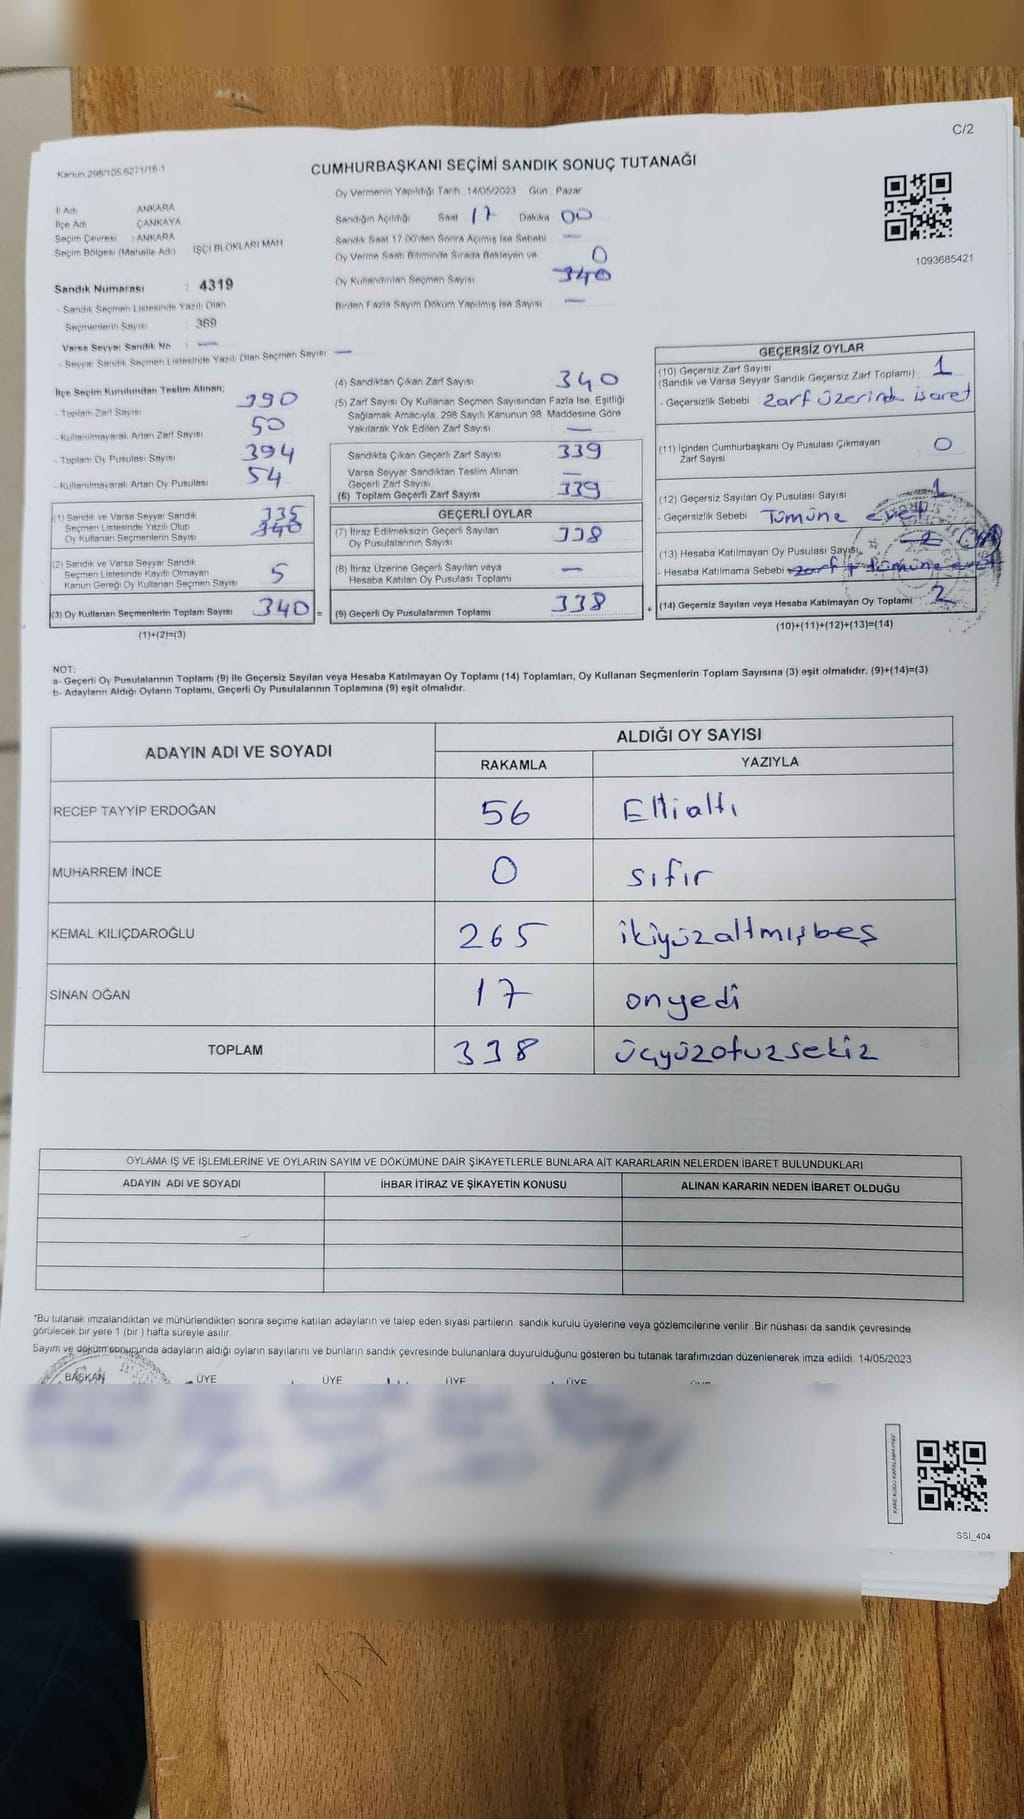 C/2
Kanun.298/105.6271/16-1
CUMHURBAŞKANI SEÇİMİ SANDIK SONUÇ TUTANAĞI
Oy Vermenin Yapıldığı Tarih :14/05/2023 Gün : Pazar
İl Adı : ANKARA
İlçe Adı : ÇANKAYA
Seçim Çevresi : ANKARA
Seçim Bölgesi (Mahalle Adı) : İŞÇİ BLOKLARI MAH
Sandık Numarası : 4319
- Sandık Seçmen Listesinde Yazılı Olan
Seçmenlerin Sayısı : 369
Varsa Seyyar Sandık No : —
- Seyyar Sandık Seçmen Listesinde Yazılı Olan Seçmen Sayısı —
Sandığın Açıldığı Saat 17 Dakika 00
Sandık Saat 17.00'den Sonra Açılmış İse Sebebi —
Oy Verme Saati Bitiminde Sırada Bekleyen ve 0
Oy Kullandırılan Seçmen Sayısı 340
Birden Fazla Sayım Döküm Yapılmış İse Sayısı —
1093685421
İlçe Seçim Kurulundan Teslim Alınan;
- Toplam Zarf Sayısı 390
- Kullanılmayarak Artan Zarf Sayısı 50
- Toplam Oy Pusulası Sayısı 394
- Kullanılmayarak Artan Oy Pusulası 54
(1) Sandık ve Varsa Seyyar Sandık 335
Seçmen Listesinde Yazılı Olup 340
Oy Kullanan Seçmenlerin Sayısı
(2) Sandık ve Varsa Seyyar Sandık
Seçmen Listesinde Kayıtlı Olmayan
Kanun Gereği Oy Kullanan Seçmen Sayısı 5
(3) Oy Kullanan Seçmenlerin Toplam Sayısı 340 =
(1)+(2)=(3)
(4) Sandıktan Çıkan Zarf Sayısı 340
(5) Zarf Sayısı Oy Kullanan Seçmen Sayısından Fazla İse, Eşitliği
Sağlamak Amacıyla, 298 Sayılı Kanunun 98. Maddesine Göre
Yakılarak Yok Edilen Zarf Sayısı —
Sandıkta Çıkan Geçerli Zarf Sayısı 339
Varsa Seyyar Sandıktan Teslim Alınan
Geçerli Zarf Sayısı —
(6) Toplam Geçerli Zarf Sayısı 339
GEÇERLİ OYLAR
(7) İtiraz Edilmeksizin Geçerli Sayılan
Oy Pusulalarının Sayısı 338
(8) İtiraz Üzerine Geçerli Sayılan veya
Hesaba Katılan Oy Pusulası Toplamı —
(9) Geçerli Oy Pusulalarının Toplamı 338 +
GEÇERSİZ OYLAR
(10) Geçersiz Zarf Sayısı
(Sandık ve Varsa Seyyar Sandık Geçersiz Zarf Toplamı) 1
- Geçersizlik Sebebi Zarf üzerinde işaret
(11) İçinden Cumhurbaşkanı Oy Pusulası Çıkmayan
Zarf Sayısı 0
(12) Geçersiz Sayılan Oy Pusulası Sayısı 1
- Geçersizlik Sebebi Tümüne evet
(13) Hesaba Katılmayan Oy Pusulası Sayısı 2
- Hesaba Katılmama Sebebi zarf + tümüne evet
(14) Geçersiz Sayılan veya Hesaba Katılmayan Oy Toplamı 2
(10)+(11)+(12)+(13)=(14)
NOT:
a- Geçerli Oy Pusulalarının Toplamı (9) ile Geçersiz Sayılan veya Hesaba Katılmayan Oy Toplamı (14) Toplamları, Oy Kullanan Seçmenlerin Toplam Sayısına (3) eşit olmalıdır. (9)+(14)=(3)
b- Adayların Aldığı Oyların Toplamı, Geçerli Oy Pusulalarının Toplamına (9) eşit olmalıdır.
ADAYIN ADI VE SOYADI
ALDIĞI OY SAYISI
RAKAMLA YAZIYLA
RECEP TAYYİP ERDOĞAN 56 Ellialtı
MUHARREM İNCE 0 sıfır
KEMAL KILIÇDAROĞLU 265 ikiyüzaltmışbeş
SİNAN OĞAN 17 onyedi
TOPLAM 338 üçyüzotuzsekiz
OYLAMA İŞ VE İŞLEMLERİNE VE OYLARIN SAYIM VE DÖKÜMÜNE DAİR ŞİKAYETLERLE BUNLARA AİT KARARLARIN NELERDEN İBARET BULUNDUKLARI
ADAYIN ADI VE SOYADI İHBAR İTİRAZ VE ŞİKAYETİN KONUSU ALINAN KARARIN NEDEN İBARET OLDUĞU
*Bu tutanak imzalandıktan ve mühürlendikten sonra seçime katılan adayların ve talep eden siyasi partilerin sandık kurulu üyelerine veya gözlemcilerine verilir .Bir nüshası da sandık çevresinde
görülecek bir yere 1 (bir ) hafta süreyle asılır.
Sayım ve döküm sonucunda adayların aldığı oyların sayılarını ve bunların sandık çevresinde bulunanlara duyurulduğunu gösteren bu tutanak tarafımızdan düzenlenerek imza edildi. 14/05/2023
BAŞKAN ÜYE ÜYE ÜYE ÜYE
SSI_404